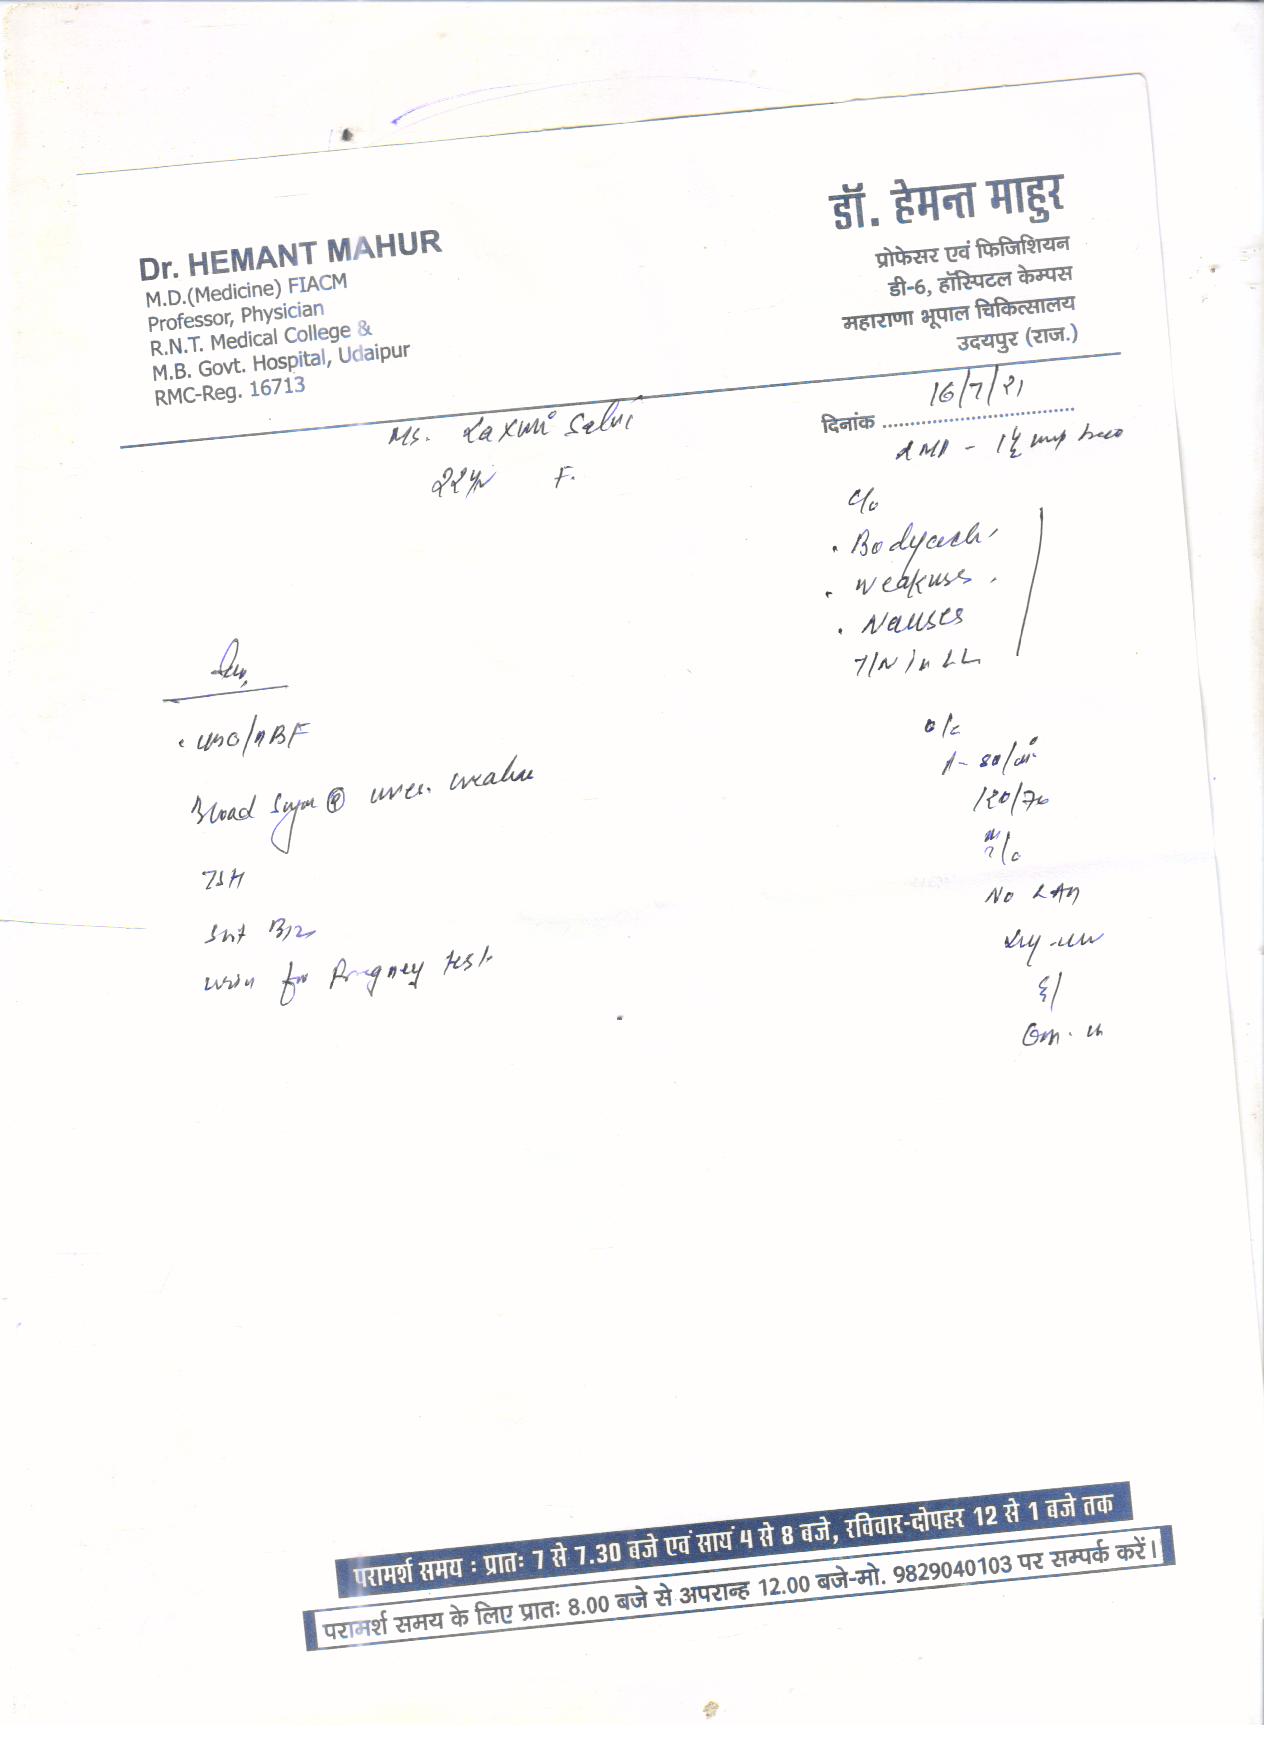 Dr. HEMANT MAHUR
M.D.(Medicine) FIACM
Professor, Physician
R.N.T. Medical College &
M.B. Govt. Hospital, Udaipur
RMC-Reg. 16713
डॉ. हेमन्त माहुर
प्रोफेसर एवं फिजिशियन
डी-6, हॉस्पिटल केम्पस
महाराणा भूपाल चिकित्सालय
उदयपुर (राज.)
दिनांक 16/7/21
Ms. Laxmi Salvi
22 F.
LMP - 1½
C/o
Bodyach
Weakness
Nausea
T/N in LL
O/E
P- 80/
120/70
No LAN
TSH
B12
Urin for Pregnancy test
परामर्श समय : प्रातः 7 से 7.30 बजे एवं सायं 4 से 8 बजे, रविवार-दोपहर 12 से 1 बजे तक
परामर्श समय के लिए प्रातः 8.00 बजे से अपरान्ह 12.00 बजे-मो. 9829040103 पर सम्पर्क करें।